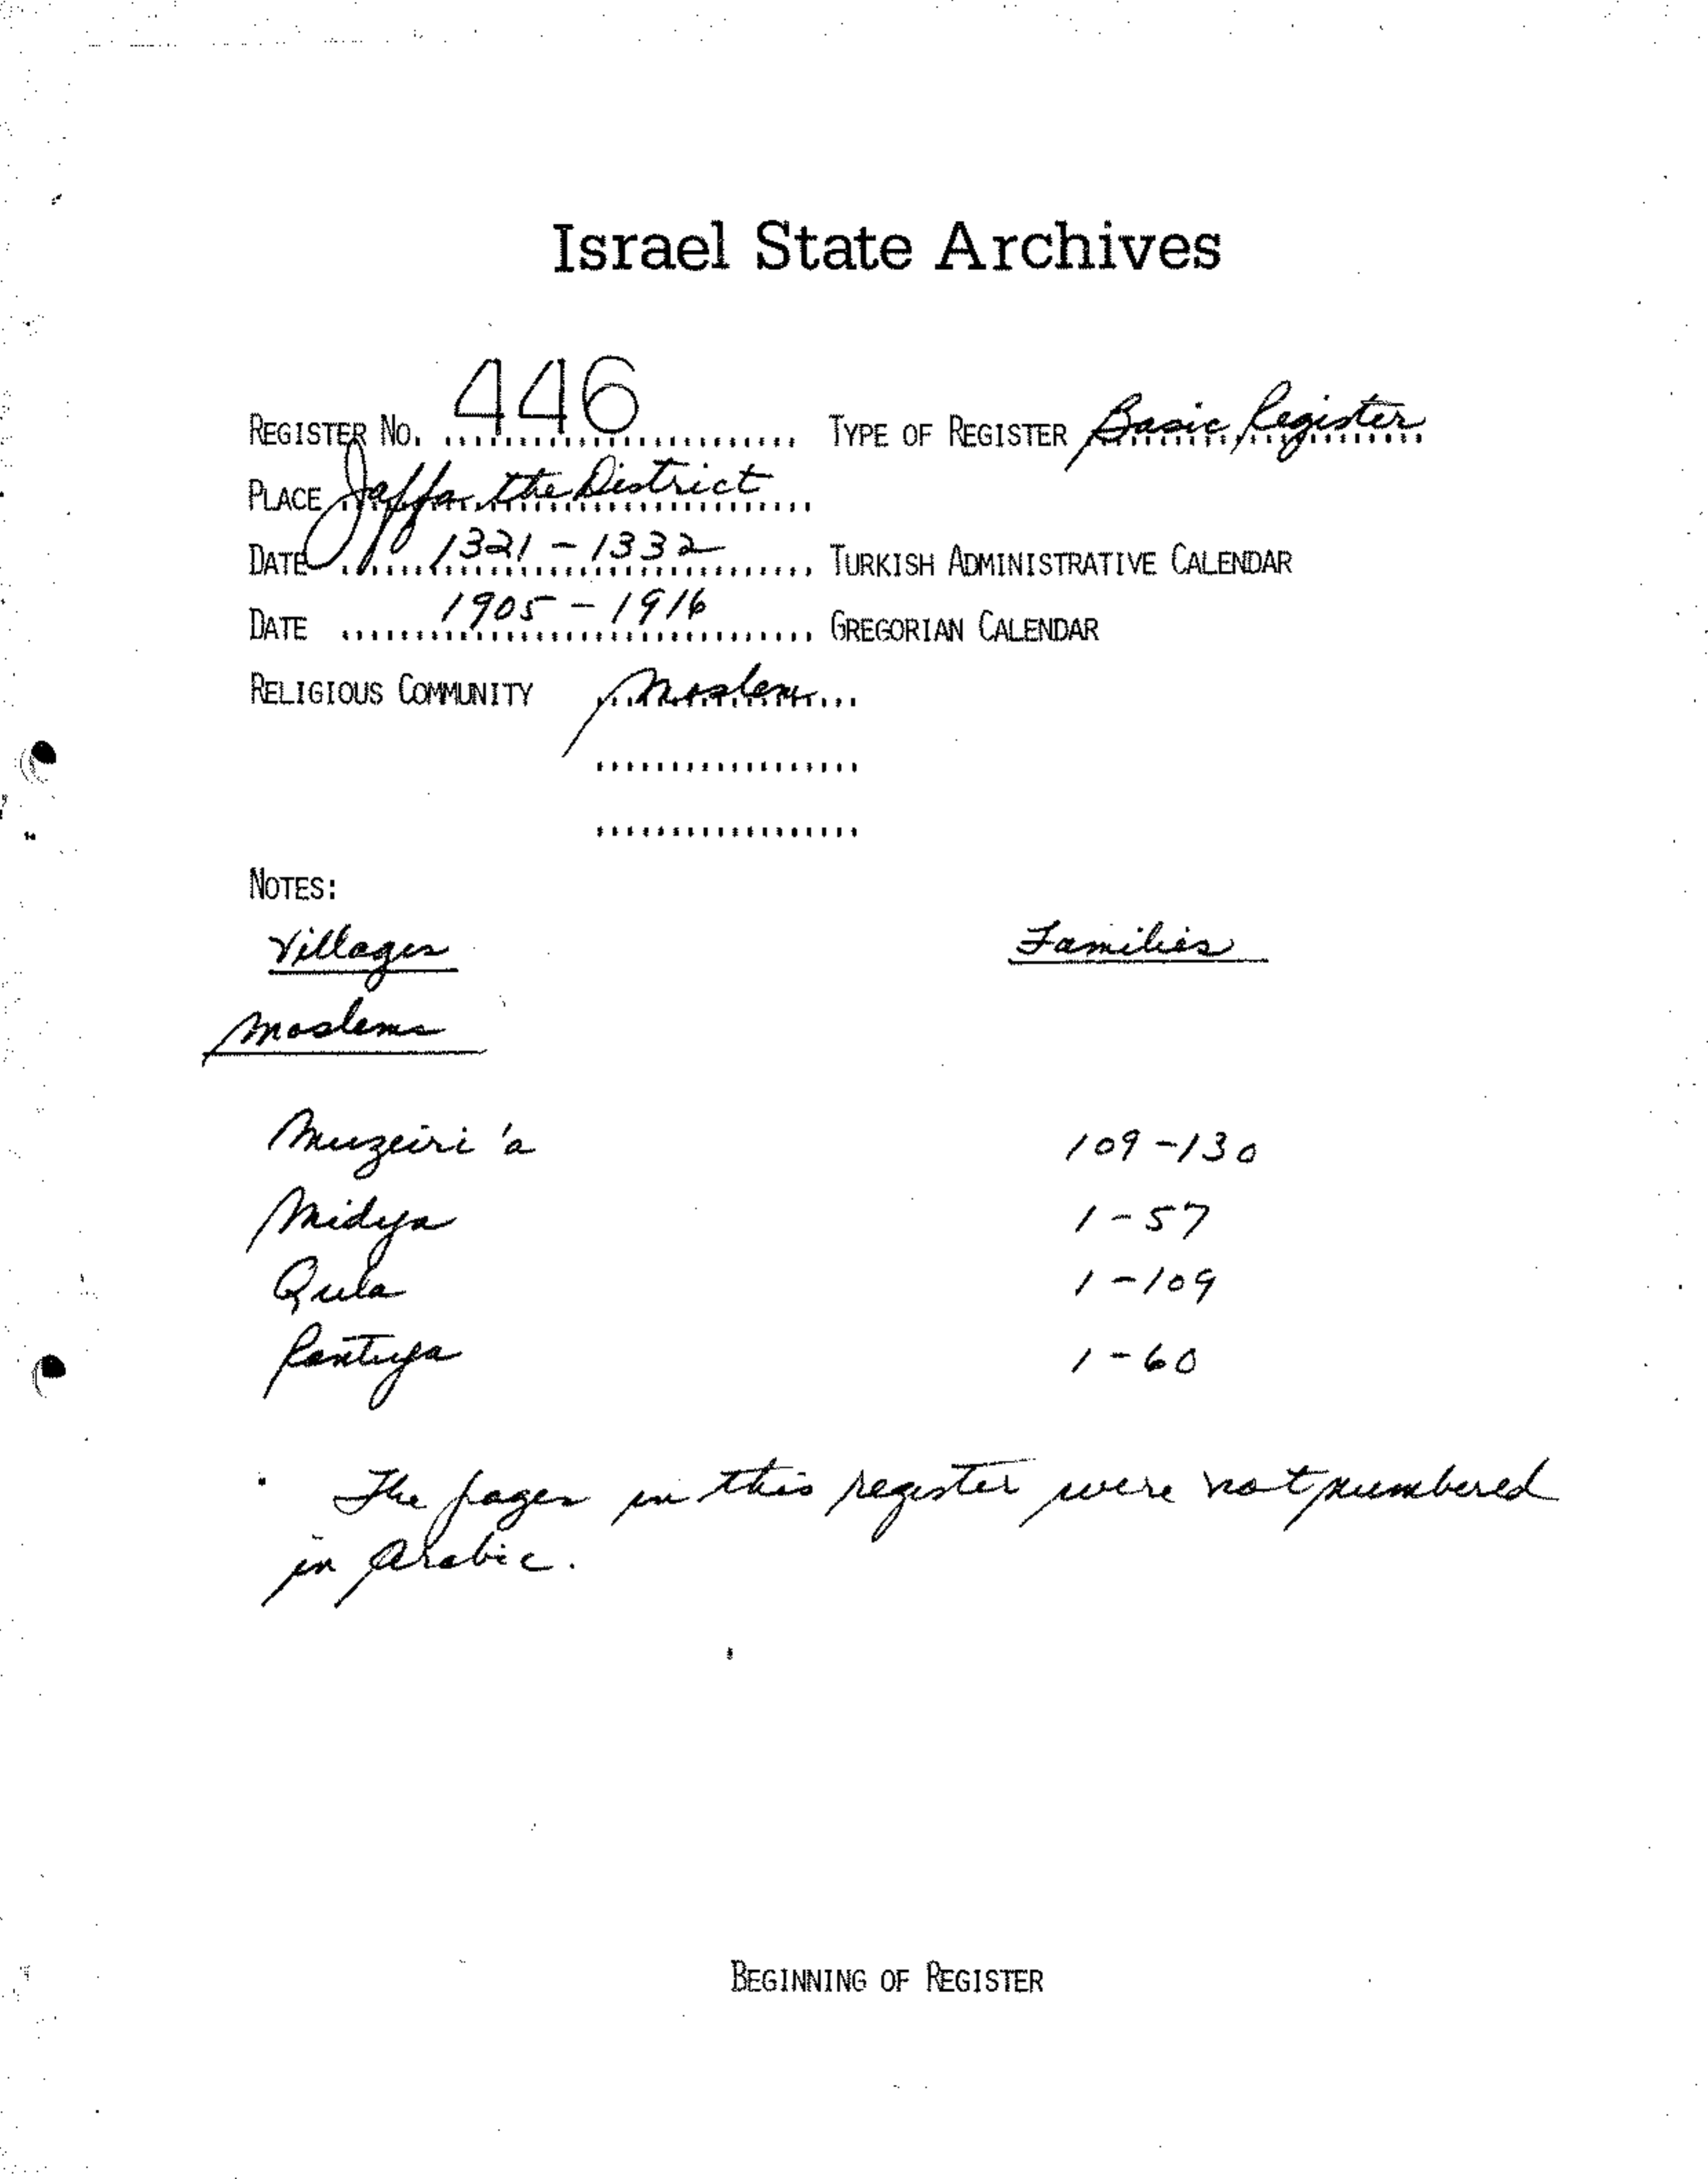 Israel State Archives
REGISTER NO. 446 TYPE OF REGISTER Basic Register
PLACE Jaffa the District
DATE 1321 - 1332 TURKISH ADMINISTRATIVE CALENDAR
DATE 1905 - 1916 GREGORIAN CALENDAR
RELIGIOUS COMMUNITY Moslem
NOTES:
Villages Families
Moslems
Muzeiri'a 109-130
Midya 1-57
Qula 1-109
Rantuya 1-60
The pages in this register were not numbered
in Arabic.
BEGINNING OF REGISTER